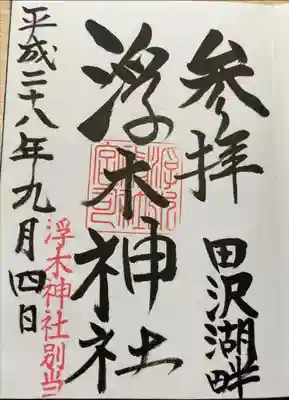 参拝
田沢湖畔
浮木神社
平成二十八年九月四日
浮木神社別当